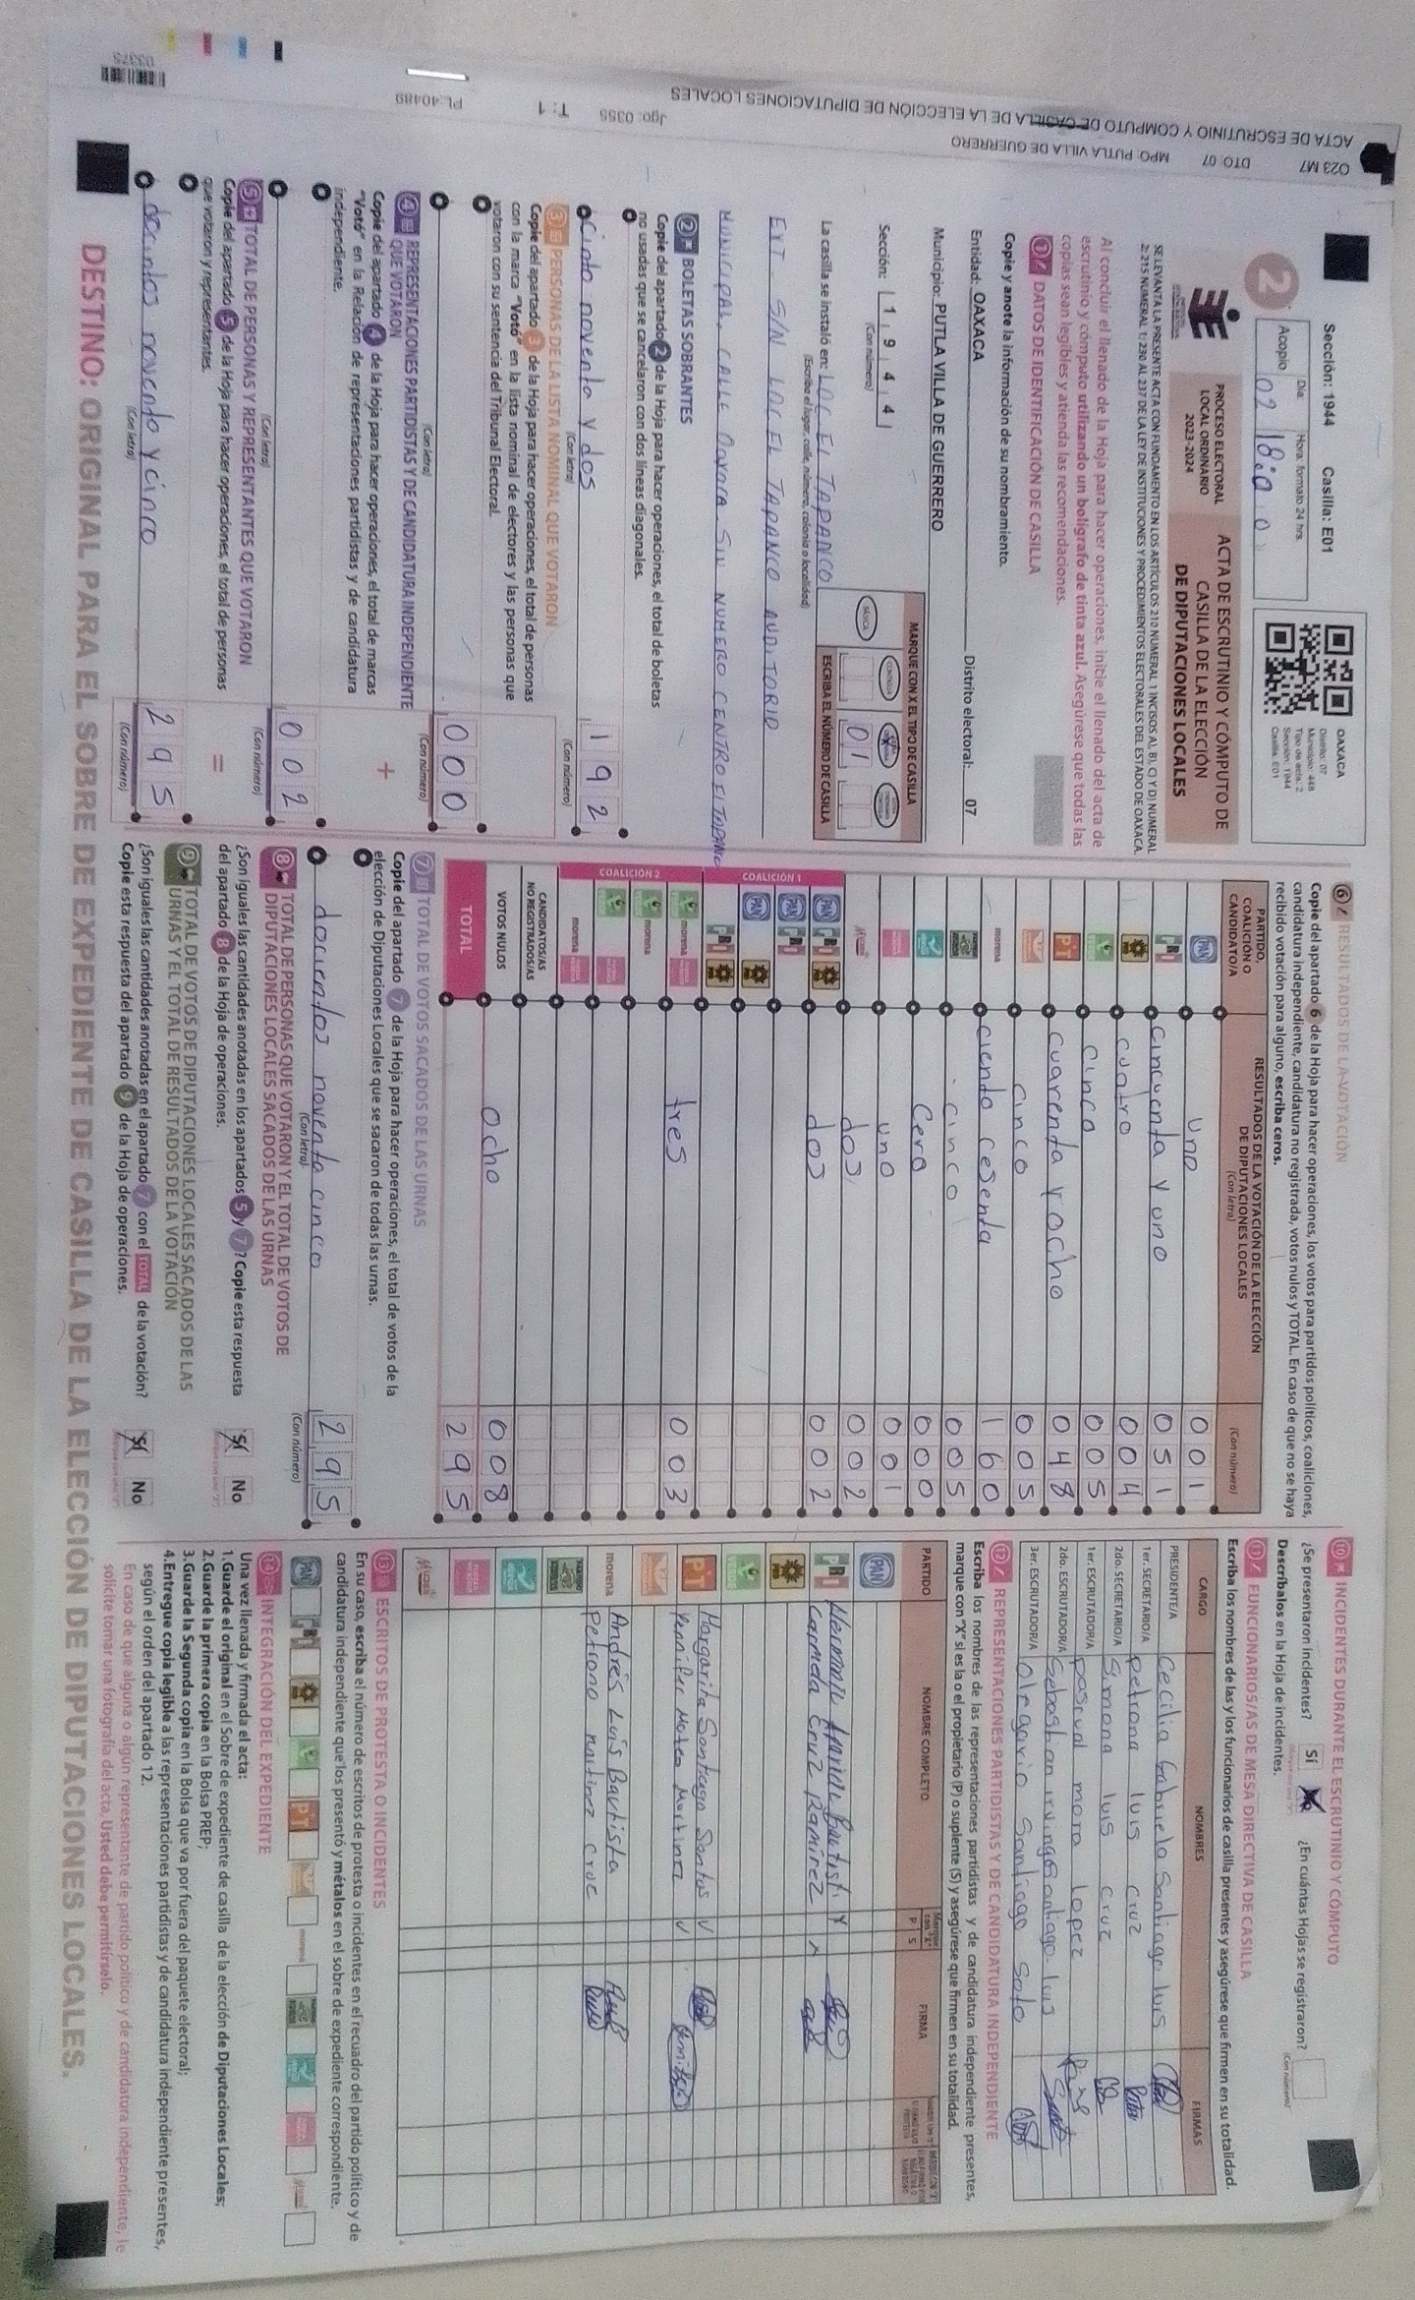 Sección: 1944 Casilla: E01
2
Acopio
Día:
Hora, formato 24 hrs.
02 18:00
OAXACA
Distrito: 07
Municipio: 448
Tipo de acta: 2
Sección: 1944
Casilla: E01
PROCESO ELECTORAL
LOCAL ORDINARIO
2023-2024
ACTA DE ESCRUTINIO Y CÓMPUTO DE
CASILLA DE LA ELECCIÓN
DE DIPUTACIONES LOCALES
SE LEVANTA LA PRESENTE ACTA CON FUNDAMENTO EN LOS ARTÍCULOS 212 NUMERAL 1 INCISOS A), B), C) Y D) NUMERAL
2; 215 NUMERAL 1; 230 AL 237 DE LA LEY DE INSTITUCIONES Y PROCEDIMIENTOS ELECTORALES DEL ESTADO DE OAXACA.
Al concluir el llenado de la Hoja para hacer operaciones, inicie el llenado del acta de
escrutinio y cómputo utilizando un bolígrafo de tinta azul. Asegúrese que todas las
copias sean legibles y atienda las recomendaciones.
1 DATOS DE IDENTIFICACIÓN DE CASILLA
Copie y anote la información de su nombramiento.
Entidad: OAXACA Distrito electoral: 07
Municipio: PUTLA VILLA DE GUERRERO
Sección: 1 9 4 4
(Con número)
MARQUE CON X EL TIPO DE CASILLA
BÁSICA
01
ESCRIBA EL NÚMERO DE CASILLA
La casilla se instaló en: LOC EL TAPANCO
(Escriba el lugar, calle, número, colonia o localidad)
EXT S/N LOC EL TAPANCO AUDITORIO
MUNICIPAL, CALLE OAXACA SIN NUMERO CENTRO EL TAPANCO
2 BOLETAS SOBRANTES
Copie del apartado 2 de la Hoja para hacer operaciones, el total de boletas
no usadas que se cancelaron con dos líneas diagonales.
Ciento noventa y dos 192
(Con letra) (Con número)
3 PERSONAS DE LA LISTA NOMINAL QUE VOTARON
Copie del apartado 3 de la Hoja para hacer operaciones, el total de personas
con la marca "Votó" en la lista nominal de electores y las personas que
votaron con su sentencia del Tribunal Electoral.
000
(Con letra) (Con número)
4 REPRESENTACIONES PARTIDISTAS Y DE CANDIDATURA INDEPENDIENTE
QUE VOTARON
Copie del apartado 4 de la Hoja para hacer operaciones, el total de marcas
"Votó" en la Relación de representaciones partidistas y de candidatura
independiente.
+
002
(Con letra) (Con número)
5 TOTAL DE PERSONAS Y REPRESENTANTES QUE VOTARON
Copie del apartado 5 de la Hoja para hacer operaciones, el total de personas
que votaron y representantes.
=
docientos noventa y cinco 295
(Con letra) (Con número)
6 RESULTADOS DE LA VOTACIÓN
Copie del apartado 6 de la Hoja para hacer operaciones, los votos para partidos políticos, coaliciones,
candidatura independiente, candidatura no registrada, votos nulos y TOTAL. En caso de que no se haya
recibido votación para alguno, escriba ceros.
PARTIDO,
COALICIÓN O
CANDIDATO/A
RESULTADOS DE LA VOTACIÓN DE LA ELECCIÓN
DE DIPUTACIONES LOCALES
(Con letra)
(Con número)
PAN uno 001
PRI cincuenta y uno 051
cuatro 004
cinco 005
PT cuarenta y ocho 048
cinco 005
morena ciento cesenta 160
cinco 005
Cero 000
uno 001
dos 002
COALICIÓN 1
PAN PRI dos 002
PAN PRI
PAN
PRI
COALICIÓN 2
morena tres 003
morena
morena
CANDIDATOS/AS
NO REGISTRADOS/AS
VOTOS NULOS ocho 008
TOTAL 295
7 TOTAL DE VOTOS SACADOS DE LAS URNAS
Copie del apartado 7 de la Hoja para hacer operaciones, el total de votos de la
elección de Diputaciones Locales que se sacaron de todas las urnas.
docientos noventa cinco 295
(Con letra) (Con número)
8 TOTAL DE PERSONAS QUE VOTARON Y EL TOTAL DE VOTOS DE
DIPUTACIONES LOCALES SACADOS DE LAS URNAS
¿Son iguales las cantidades anotadas en los apartados 5 y 7? Copie esta respuesta
del apartado 8 de la Hoja de operaciones.
Sí No
9 TOTAL DE VOTOS DE DIPUTACIONES LOCALES SACADOS DE LAS
URNAS Y EL TOTAL DE RESULTADOS DE LA VOTACIÓN
¿Son iguales las cantidades anotadas en el apartado 7 con el TOTAL de la votación?
Copie esta respuesta del apartado 9 de la Hoja de operaciones.
Sí No
10 INCIDENTES DURANTE EL ESCRUTINIO Y CÓMPUTO
¿Se presentaron incidentes? Sí No ¿En cuántas Hojas se registraron?
(Con número)
Descríbalos en la Hoja de incidentes.
11 FUNCIONARIOS/AS DE MESA DIRECTIVA DE CASILLA
Escriba los nombres de las y los funcionarios de casilla presentes y asegúrese que firmen en su totalidad.
CARGO NOMBRES FIRMAS
PRESIDENTE/A Cecilia Gabriela Santiago luis
1er. SECRETARIO/A petrona luis cruz
2do. SECRETARIO/A Simona luis cruz
1er. ESCRUTADOR/A pascual mora lopez
2do. ESCRUTADOR/A Sebastian irving Santiago luis
3er. ESCRUTADOR/A Olegario Santiago Soto
12 REPRESENTACIONES PARTIDISTAS Y DE CANDIDATURA INDEPENDIENTE
Escriba los nombres de las representaciones partidistas y de candidatura independiente presentes,
marque con "X" si es la o el propietario (P) o suplente (S) y asegúrese que firmen en su totalidad.
PARTIDO NOMBRE COMPLETO P S FIRMA
PAN
PRI
Carmela Cruz Ramírez
PT Margarita Santiago Santos
Yennifer Mateo Martinez
morena Andrés Luis Bautista
Petrona martinez cruz
13 ESCRITOS DE PROTESTA O INCIDENTES
En su caso, escriba el número de escritos de protesta o incidentes en el recuadro del partido político y de
candidatura independiente que los presentó y métalos en el sobre de expediente correspondiente.
PAN PRI PT morena
14 INTEGRACIÓN DEL EXPEDIENTE
Una vez llenada y firmada el acta:
1.Guarde el original en el Sobre de expediente de casilla de la elección de Diputaciones Locales;
2.Guarde la primera copia en la Bolsa PREP;
3.Guarde la Segunda copia en la Bolsa que va por fuera del paquete electoral;
4.Entregue copia legible a las representaciones partidistas y de candidatura independiente presentes,
según el orden del apartado 12.
En caso de que alguna o algún representante de partido político y de candidatura independiente, le
solicite tomar una fotografía del acta, Usted debe permitírselo.
DESTINO: ORIGINAL PARA EL SOBRE DE EXPEDIENTE DE CASILLA DE LA ELECCIÓN DE DIPUTACIONES LOCALES.
O23 M7 DTO 07 MPO: PUTLA VILLA DE GUERRERO
ACTA DE ESCRUTINIO Y COMPUTO DE CASILLA DE LA ELECCIÓN DE DIPUTACIONES LOCALES
Jgo: 0355 T: 1 PL:40489
03375